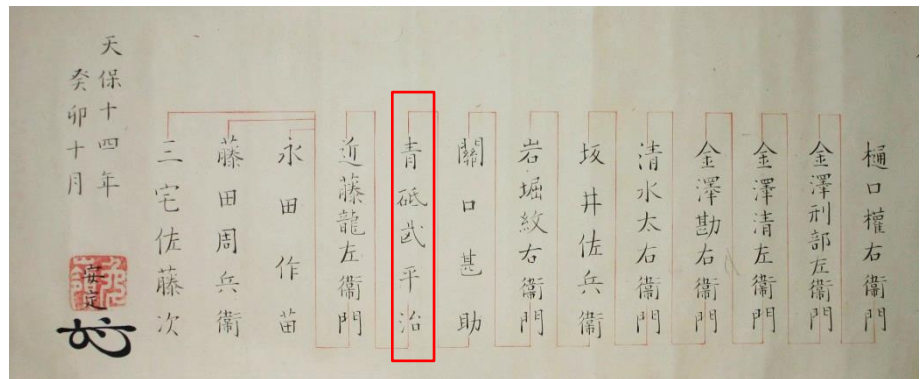 樋口權右衞門
金澤刑部左衞門
金澤清左衞門
金澤勘右衞門
清水太右衞門
坂井佐兵衞
岩堀紋右衞門
關口甚助
青砥武平治
近藤龍左衞門
永田作苗
藤田周兵衞
三宅佐藤次
天保十四年
癸卯十月
安定